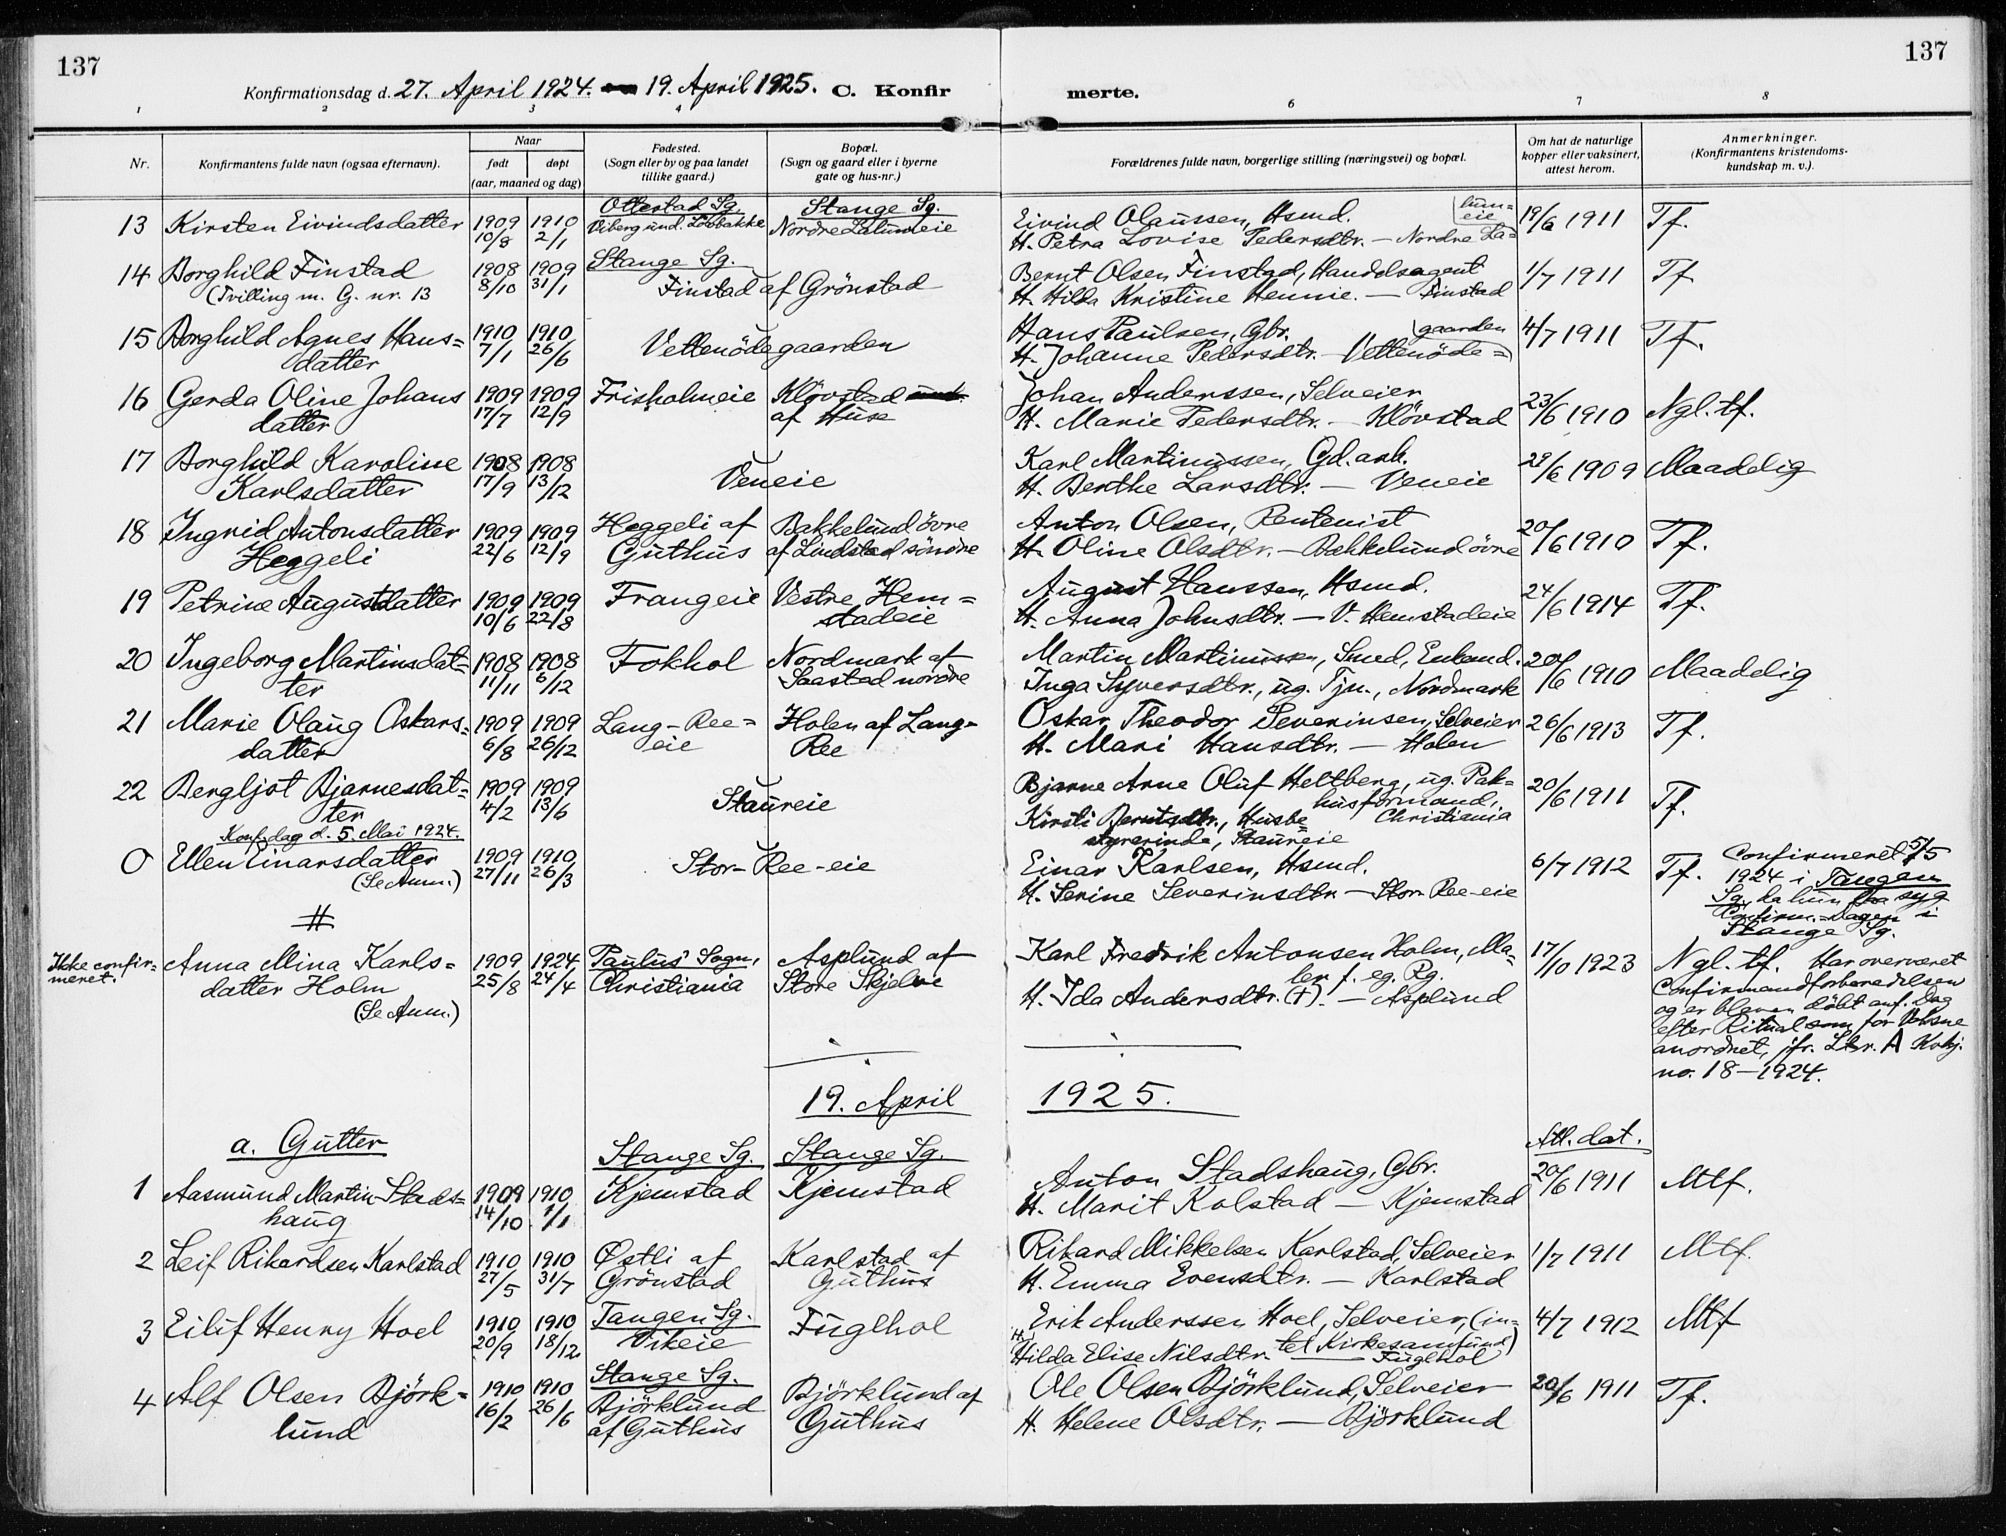 137
137
Konfirmationsdag d. 27. April 1924. — 19. April 1925. C. Konfirmerte.
1 2 3 4 6 7 8
Nr.
Konfirmantens fulde navn (ogsaa efternavn).
Naar
født
døpt
(aar, maaned og dag)
Fødested.
(Sogn eller by og paa landet
tillike gaard.)
Bopæl.
(Sogn og gaard eller i byerne
gate og hus-nr.)
Forældrenes fulde navn, borgerlige stilling (næringsvei) og bopæl.
Om hat de naturlige
kopper eller vaksinert,
attest herom.
Anmerkninger.
(Konfirmantens kristendoms-
kundskap m. v.).
Ottestad Sg. Stange Sg.
13 Kirsten Eivindsdatter 1909 10/8 1910 2/1 Viberg und. Nordre Lalumeie
Eivind Olaussen, Hsmd.
H. Petra Lovise Pedersdtr. — Nordre La=
lum=
eie
19/6 1911 Tf.
14 Borghild Finstad 1908 8/10 1909 31/1 Stange Sg.
(Tvilling m. G. nr. 13
Finstad af Grönstad
Bernt Olsen Finstad, Handelsagent
H. Hilda Kristine Hennie. — Finstad
1/7 1911 Tf
15 Borghild Agnes Hans=
datter 1910 7/1 1910 26/6
Vettenödegaarden
Hans Paulsen, Gbr.
H. Johanne Pedersdtr. — Vettenöde=
gaarden
4/7 1911 Tf.
16 Gerda Oline Johans
datter 1909 17/7 1909 12/9 Frisholmeie Klövstad und.
af Huse
Johan Anderssen, Selveier
H. Marie Pedersdtr. — Klövstad
23/6 1910 Ngl. tf.
17 Borghild Karoline
Karlsdatter 1908 17/9 1908 13/12
Veneie
Karl Martinussen, Gd. arb.
H. Berthe Larsdtr. — Veneie
29/6 1909 Maadelig
18 Ingrid Antonsdatter
Heggeli 1909 22/6 1909 12/9
Heggeli af
Guthus
Bakkelund övre
af Lindstad söndre
Anton Olsen, Rentenist
H. Oline Olsdtr. — Bakkelund övre
20/6 1910 Tf.
19 Petrine Augustdatter 1909 10/6 1909 22/8 Frangeie Vestre Hem=
stadeie
August Hanssen, Hsmd.
H. Anna Johnsdtr. — V. Hemstadeie
24/6 1914 Tf.
20 Ingeborg Martinsdat=
ter 1908 11/11 1908 6/12 Fokhol Nordmark af
Saastad nordre
Martin Martinussen, Smed, Enkemd.
Inga Syversdtr., ug. Tjn., Nordmark
20/6 1910 Maadelig
21 Marie Olaug Oskars=
datter 1909 6/8 1909 26/12 Lang-Ree=
eie
Holen af Lang=
Ree
Oskar Theodor Severinsen, Selveier
H. Mari Hansdtr. — Holen
26/6 1913 Tf.
22 Bergljot Bjarnesdat=
ter 1909 4/2 1909 13/6
Staureie
Bjarne Arne Oluf Heltberg, ug. Pak=
husformand, Christiania
Kirsti Berntsdtr., Husbe=
styrerinde, Staureie
20/6 1911 Tf.
Konf. dag d. 5. Mai 1924.
0 Ellen Einarsdatter
(Se Anm.) 1909 27/11 1910 26/3
Stor-Ree-eie
Einar Karlsen, Hsmd.
H. Serine Severinsdtr. — Stor-Ree-eie
6/7 1912 Tf. Confirmeret 5/5
1924 i Tangen
Sg., da hun var syg
Confirm.=Dagen i
Stange Sg.
#
Ikke confir=
meret.
Anna Mina Karls=
datter Holm
(Se Anm.) 1909 25/8 1924 24/4
Paulus' Sogn,
Christiania
Asplund af
Store Skjelve
Karl Fredrik Antonsen Holm, Ma=
ler f. eg. Rg.
H. Ida Andersdtr. (+). — Asplund
17/10 1923 Ngl. tf. Har overværet
Confirmandforberedelsen
og er bleven döbt anf. Dag
efter Ritual som for Voksne
anordnet, jfr. Ltr. A Kbkj.
no. 18—1924.
19. April 1925.
a. Gutter
Stange Sg. Stange Sg.
Att. dat.
1 Aasmund Martin Stads=
haug 1909 14/10 1910 1/1 Kjemstad Kjemstad
Anton Stadshaug, Gbr.
H. Marit Kolstad — Kjemstad
20/6 1911 Mtf.
2 Leif Rikardsen Karlstad 1910 27/5 1910 31/7
Østli af
Grönstad
Karlstad af
Guthus
Rikard Mikkelsen Karlstad, Selveier
H. Emma Evensdtr. — Karlstad
1/7 1911 Mtf.
3 Eilif Henry Hoel 1910 20/9 1910 18/12
Tangen Sg.
Vikeie
Fuglhol
Erik Anderssen Hoel, Selveier, (in=
tet Kirkesamfund)
H. Hilda Elise Nilsdtr. — Fuglhol
4/7 1912 Mtf
4 Alf Olsen Björk=
lund 1910 16/2 1910 26/6
Stange Sg.
Björklund
af Guthus
Björklund af
Guthus
Ole Olsen Björklund, Selveier
H. Helene Olsdtr. — Björklund
20/6 1911 Tf.